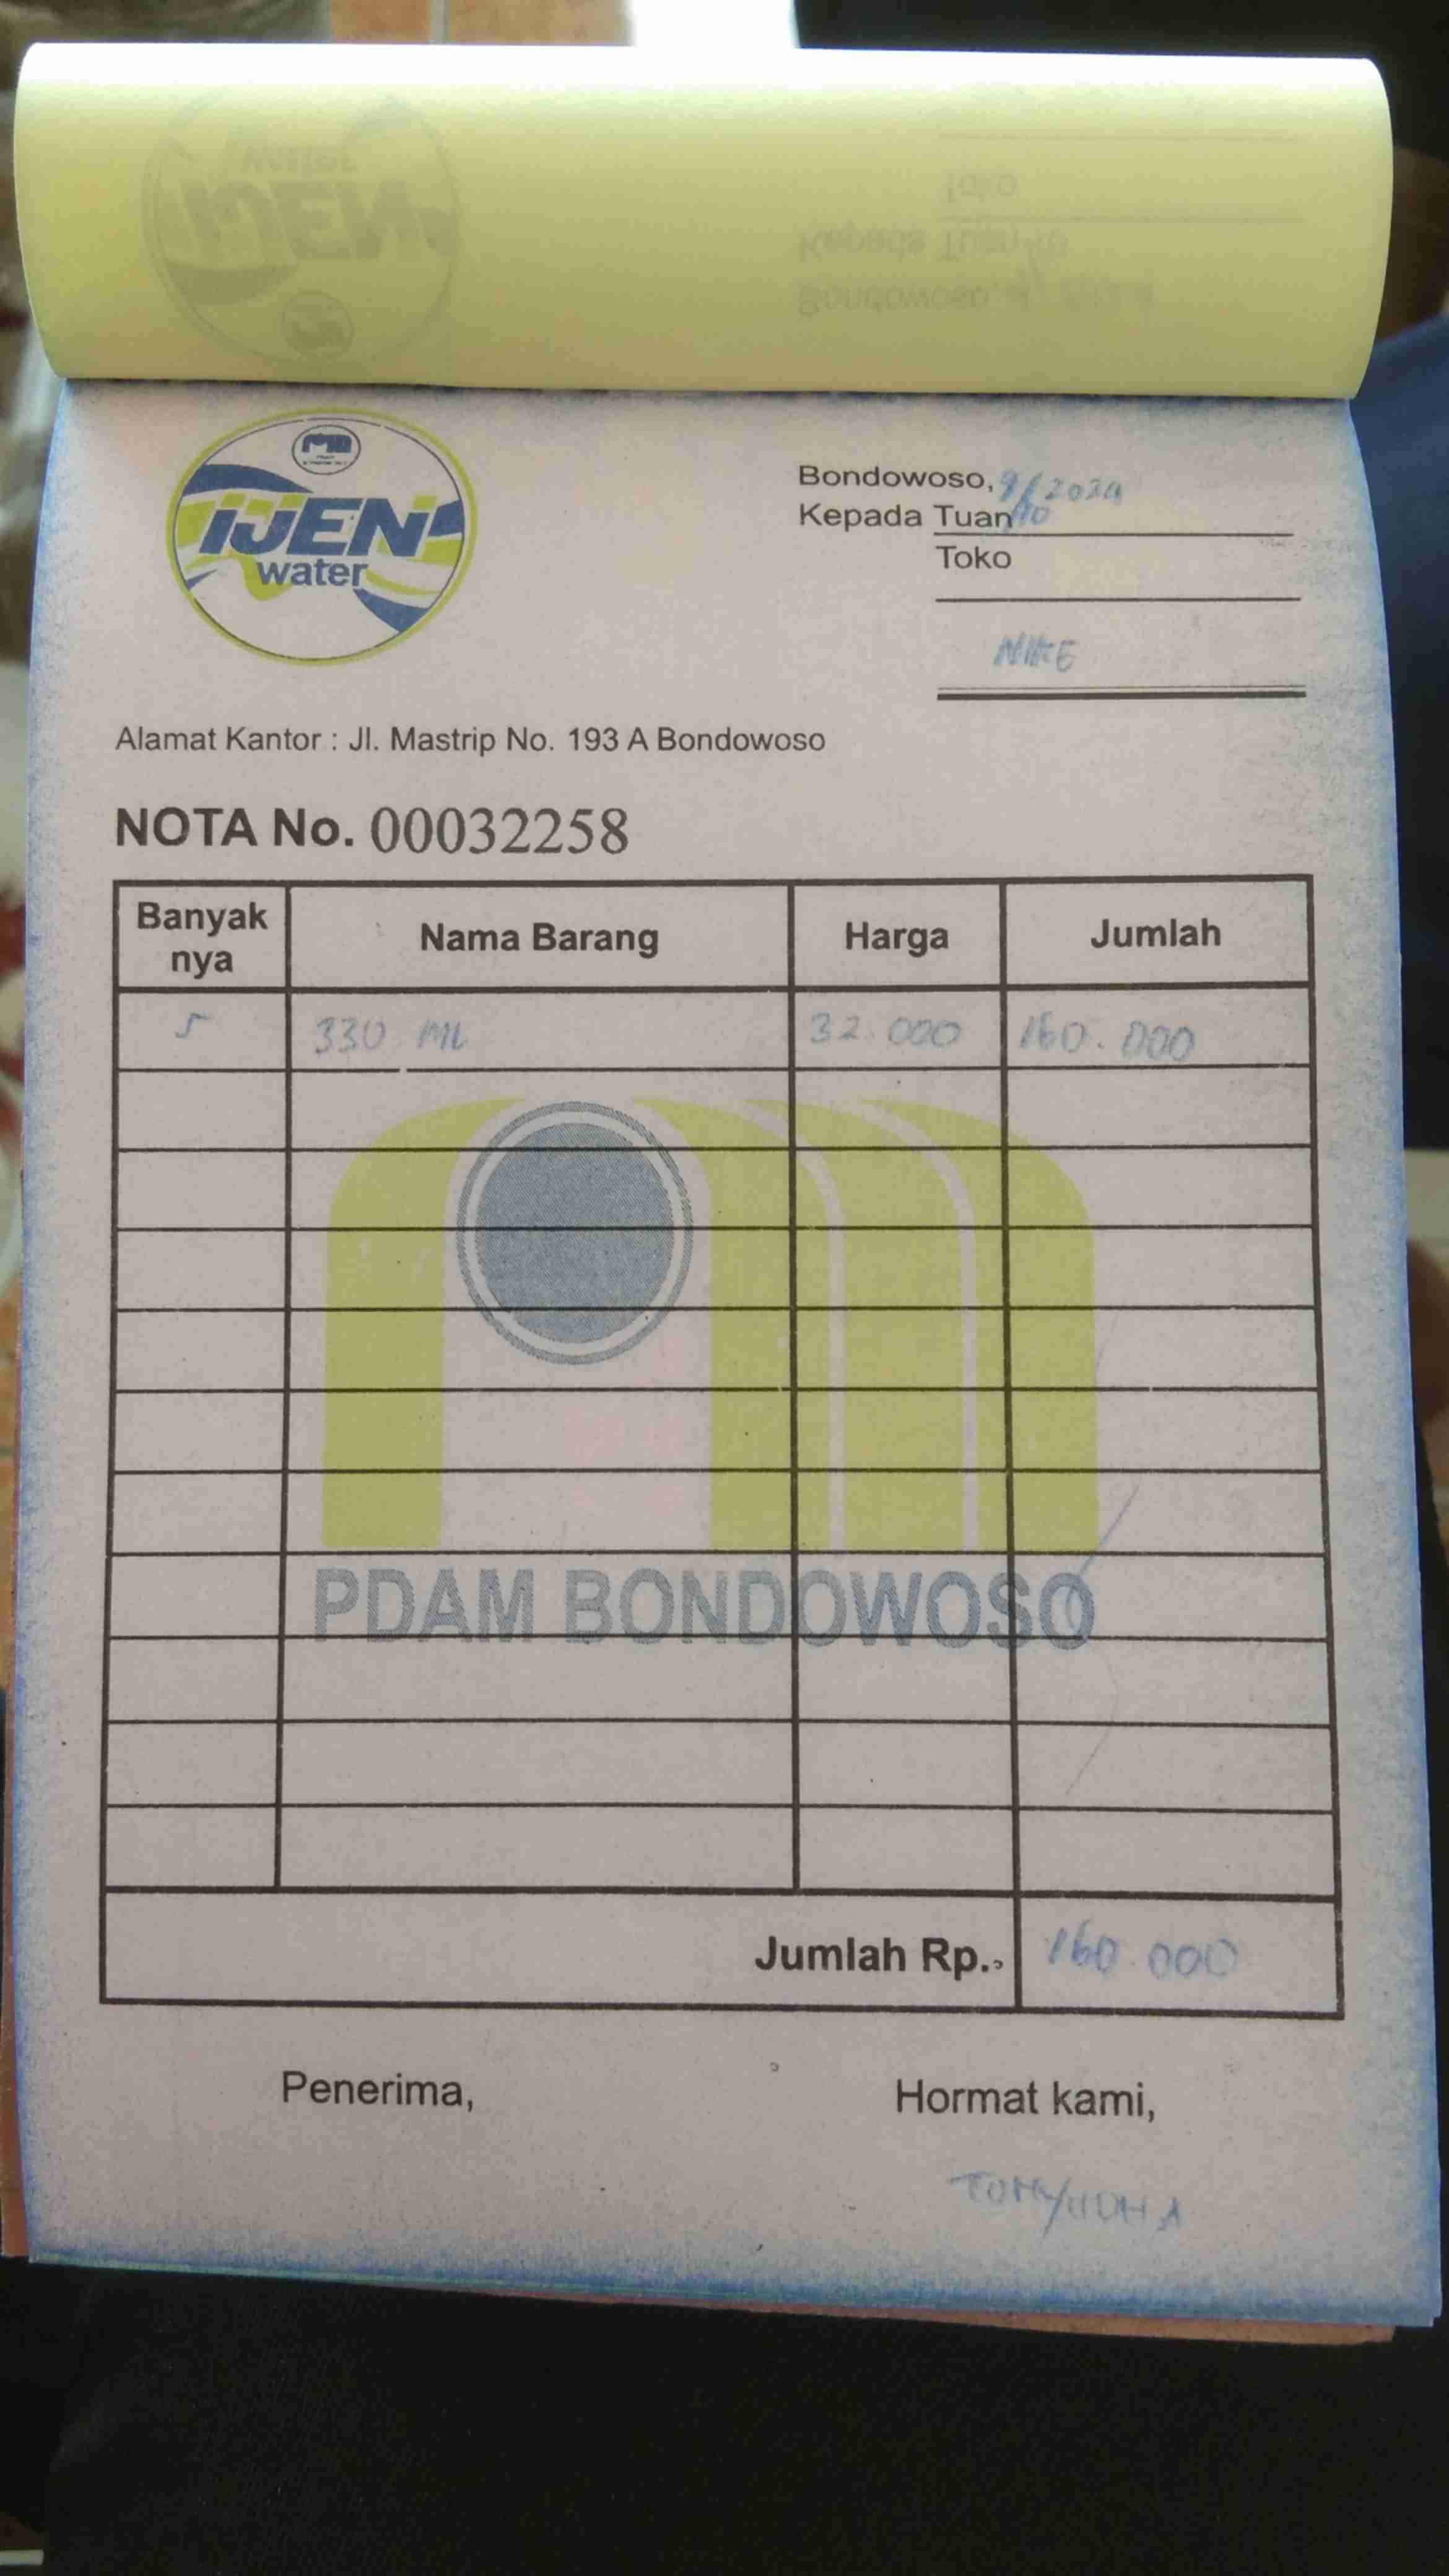 IJEN
water
Bondowoso, 9/10 2024
Kepada Tuan
Toko
NIKE
Alamat Kantor : Jl. Mastrip No. 193 A Bondowoso
NOTA No. 00032258
Banyak nya Nama Barang Harga Jumlah
5 330 ML 32.000 160.000
PDAM BONDOWOSO
Jumlah Rp. 160.000
Penerima, Hormat kami,